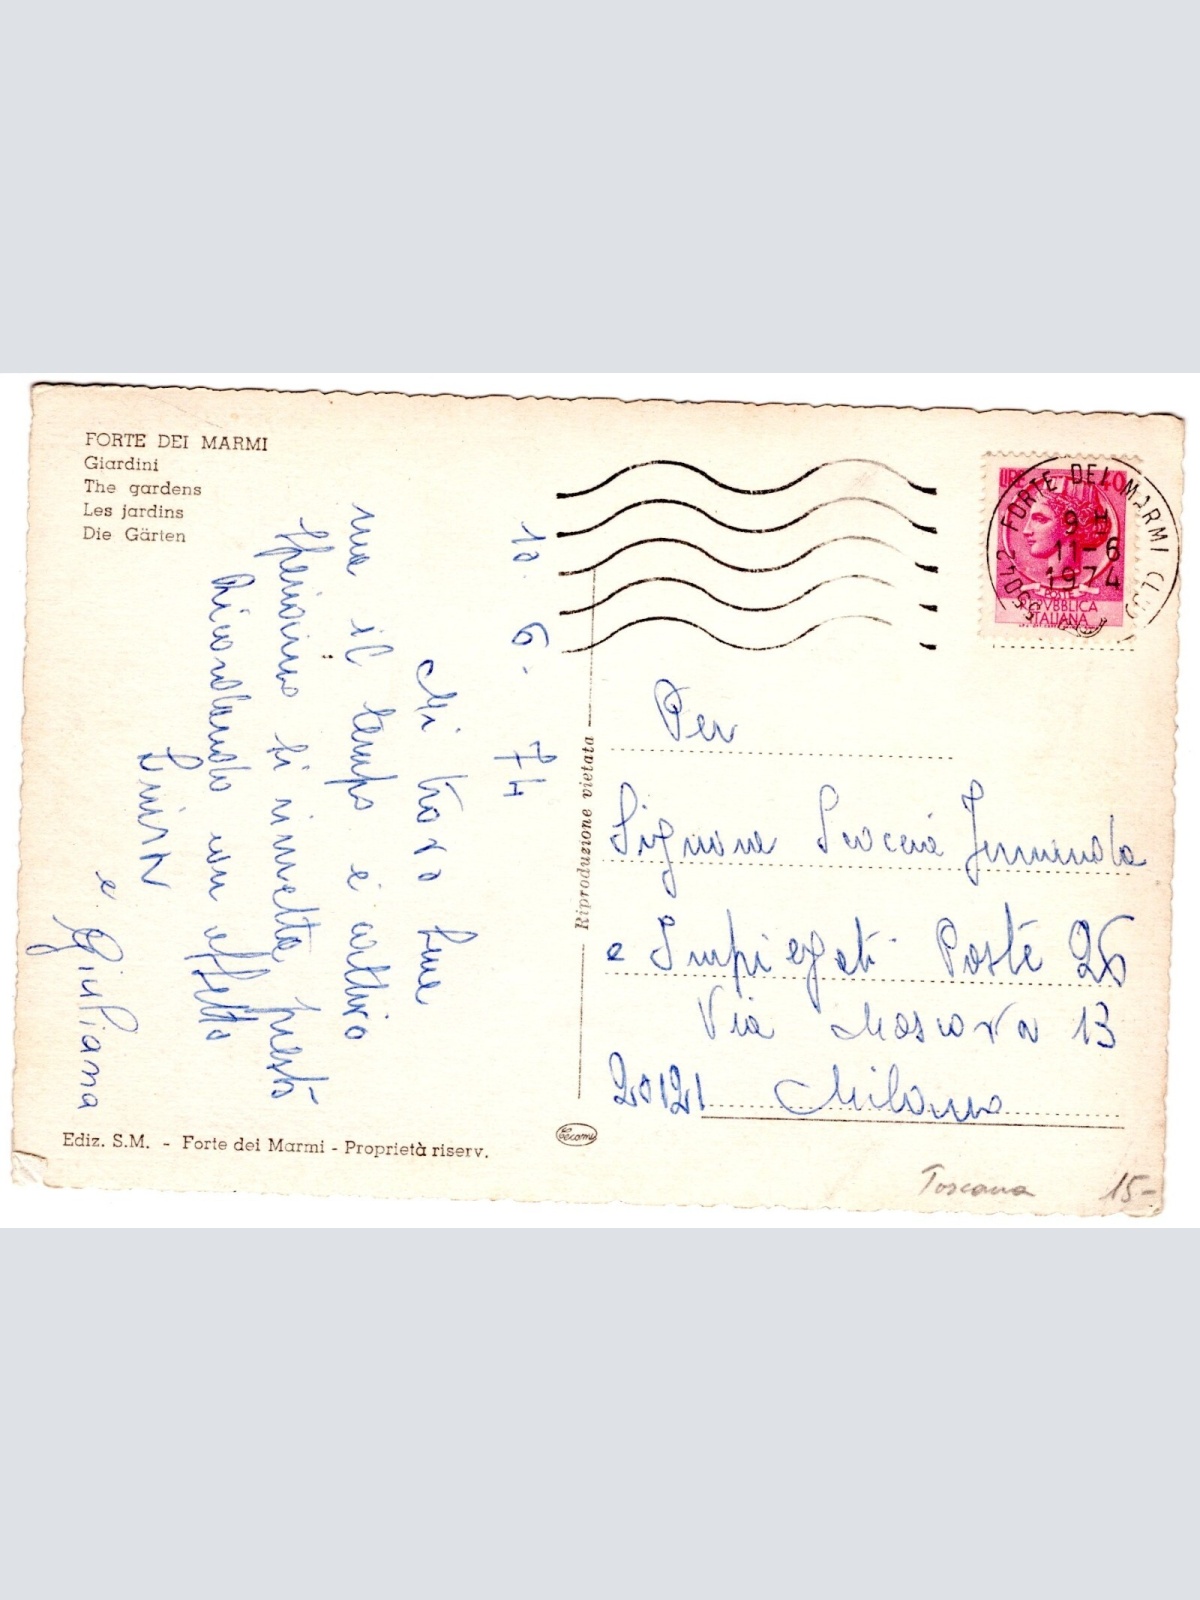 FORTE DEI MARMI
Giardini
The gardens
Les jardins
Die Gärten
10. 6. 74
Mi trovo bene
ma il tempo è cattivo
speriamo si rimetta presto
Ricordando con affetto
Luisa
e Giuliana
Ediz. S.M. - Forte dei Marmi - Proprietà riserv.
Riproduzione vietata
LIRE 40
POSTE
REPVBBLICA
ITALIANA
55042 FORTE DEI MARMI (LU)
9 H
11-6
1974
Per
Signora
e Impiegati Poste 26
Via Moscova 13
20121 Milano
Toscana 15-